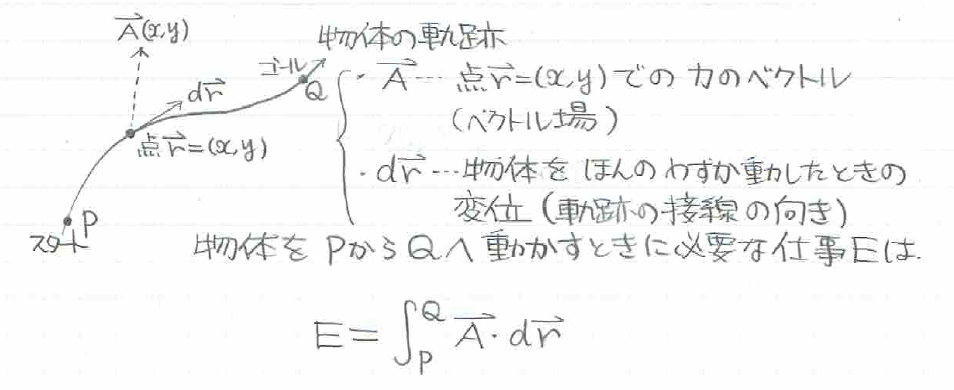 A⃗(x,y)
物体の軌跡
ゴール
Q
dr⃗
点r⃗=(x,y)
P
スタート
・A⃗…点r⃗=(x,y)での力のベクトル
(ベクトル場)
・dr⃗…物体をほんのわずか動したときの
変位(軌跡の接線の向き)
物体をPからQへ動かすときに必要な仕事Eは.
E=∫_P^Q A⃗・dr⃗